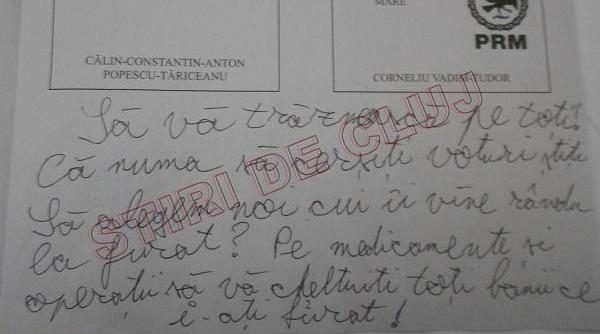 MARE
PRM
CĂLIN-CONSTANTIN-ANTON
POPESCU-TĂRICEANU
CORNELIU VADIM-TUDOR
Să vă trăznească pe toți!
Că numa să cerșiți voturi știți
Să alegem noi cui îi vine rându
la furat? Pe medicamente si
operații să vă cheltuiti toți banii ce
i-ați furat!
STIRI DE CLUJ